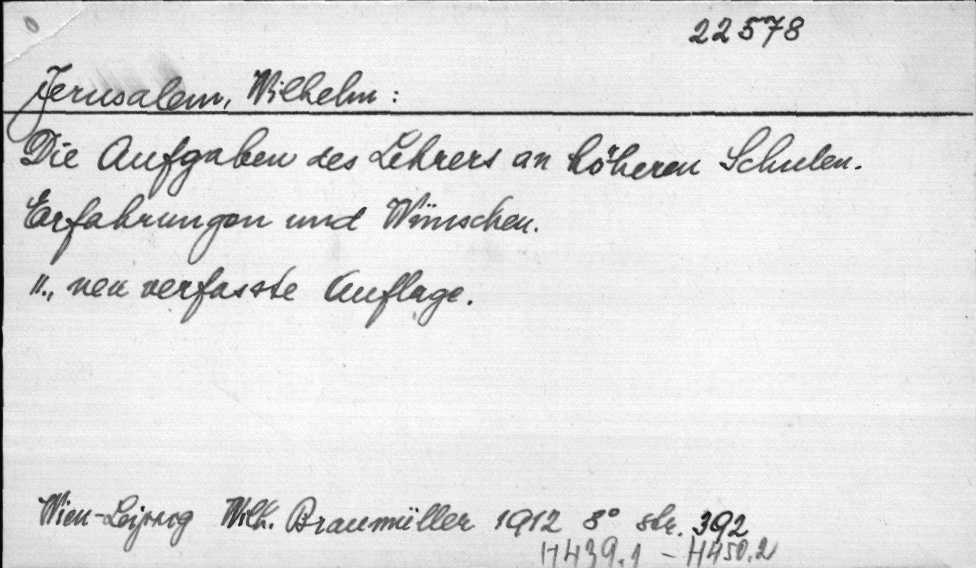 22578
Jerusalem, Wilhelm:
Die Aufgaben des Lehrers an höheren Schulen.
Erfahrungen und Wünschen.
II., neu verfasste Auflage.
Wien-Leipzig Wilh. Braumüller 1912 8° str. 392
H439.1 - H450.2